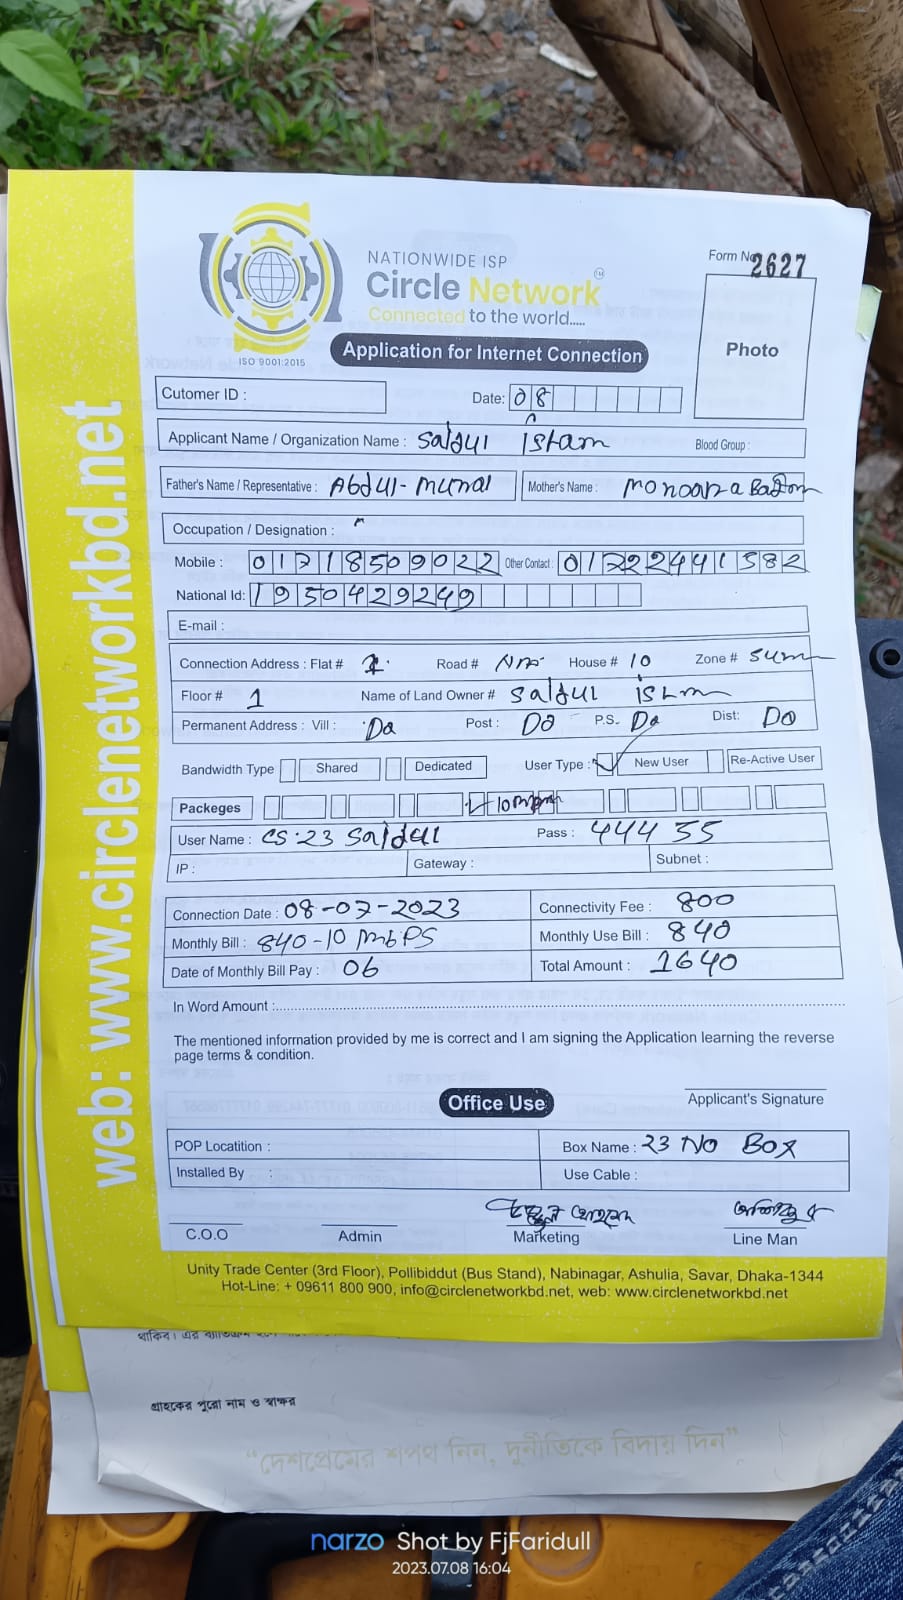 web: www.circlenetworkbd.net
NATIONWIDE ISP
Circle Network TM
Connected to the world.....
ISO 9001:2015
Form No 2627
Photo
Application for Internet Connection
Cutomer ID :
Date: 08
Applicant Name / Organization Name : Saidul Islam Blood Group :
Father's Name / Representative : Abdul- Mother's Name :
Occupation / Designation :
Mobile : 01718509022 Other Contact : 01722441382
National Id: 1950429249
E-mail :
Connection Address : Flat # Road # House # 10 Zone #
Floor # 1 Name of Land Owner # Saidul
Permanent Address : Vill : Do Post : Do P.S. Do Dist: Do
Bandwidth Type Shared Dedicated User Type : New User Re-Active User
Packeges 10
User Name : CS.23 Saidul Pass : 444 55
IP : Gateway : Subnet :
Connection Date : 08-07-2023 Connectivity Fee : 800
Monthly Bill : 840-10 MbPS Monthly Use Bill : 840
Date of Monthly Bill Pay : 06 Total Amount : 1640
In Word Amount :
The mentioned information provided by me is correct and I am signing the Application learning the reverse
page terms & condition.
Applicant's Signature
Office Use
POP Locatition : Box Name : 23 NO BOX
Installed By : Use Cable :
C.O.O Admin Marketing Line Man
Unity Trade Center (3rd Floor), Pollibiddut (Bus Stand), Nabinagar, Ashulia, Savar, Dhaka-1344
Hot-Line: + 09611 800 900, info@circlenetworkbd.net, web: www.circlenetworkbd.net
থাকিব। এর
গ্রাহকের পুরো নাম ও স্বাক্ষর
“দেশপ্রেমের শপথ নিন, দুর্নীতিকে বিদায় দিন”
narzo Shot by FjFaridull
2023.07.08 16:04